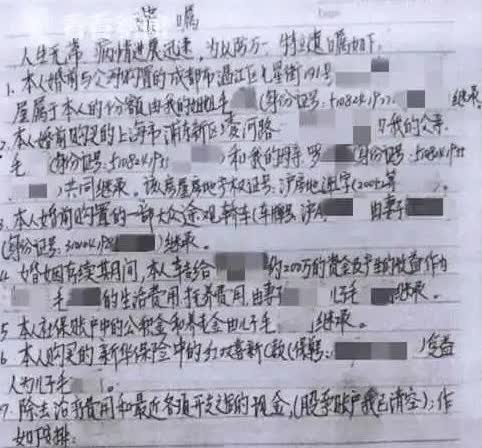 遗嘱
人生无常，病情进展迅速，为以防万一，特立遗嘱如下：
1. 本人婚前与父母购置的成都市温江区 星街191号
屋属于本人的份额由我的姐姐毛 (身份证号：510824197 继承。
2. 本人婚前购买的上海市浦东新区 河路 由我的父亲
毛 (身份证号：510824195 )和我的母亲罗 (身份证号：5108241955
)共同继承。该房屋房地产权证号：沪房地浦字(200 第 )。
3. 本人婚前购置的一部大众途观轿车(车牌号：沪A 由妻子
(身份证号：310104198 )继承。
4. 婚姻存续期间，本人 给 约200万的资金及产生的收益作为
毛 的生活费用、抚养费用，由妻子 、儿子毛 继承。
5 本人社保账户中的公积金和养老金由儿子毛 继承。
6 本人购买的新华保险中的 (保额： )受益
人为儿子毛 。
7. 除去治病费用和最近各项开支之后的现金，(股票账户我已清空)：作
如下安排：